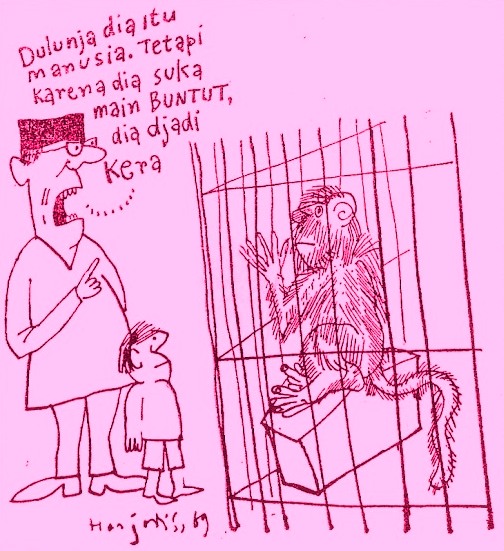 Dulunja dia itu
manusia. Tetapi
karena dia suka
main BUNTUT,
dia djadi
kera
69